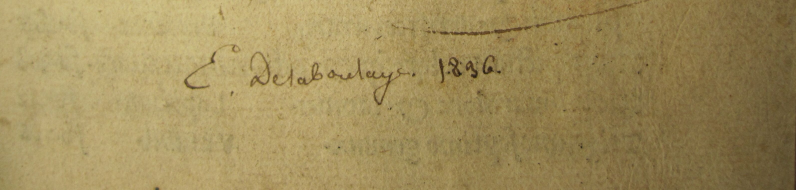 E. Delaboulaye. 1836.